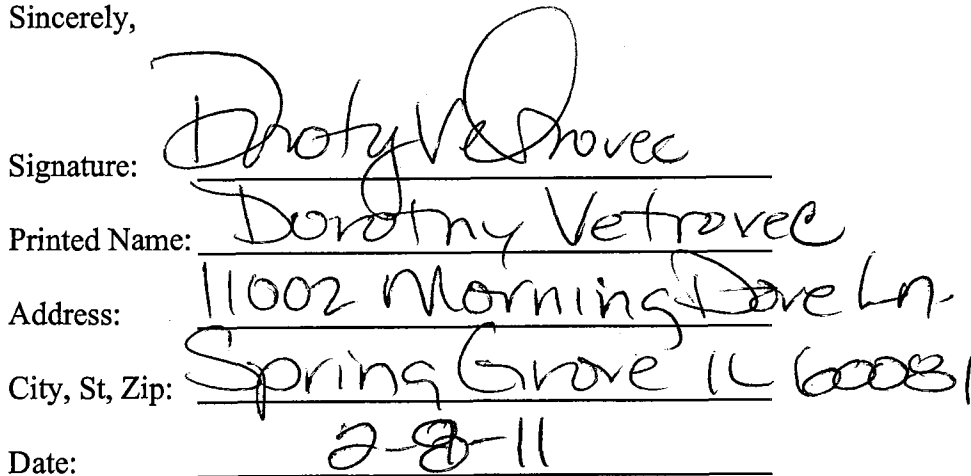 Sincerely,
Signature: Doroty Vetrovec
Printed Name: Dorothy Vetrovec
Address: 11002 Morning Dove Ln.
City, St, Zip: Spring Grove IL 60081
Date: 2-8-11